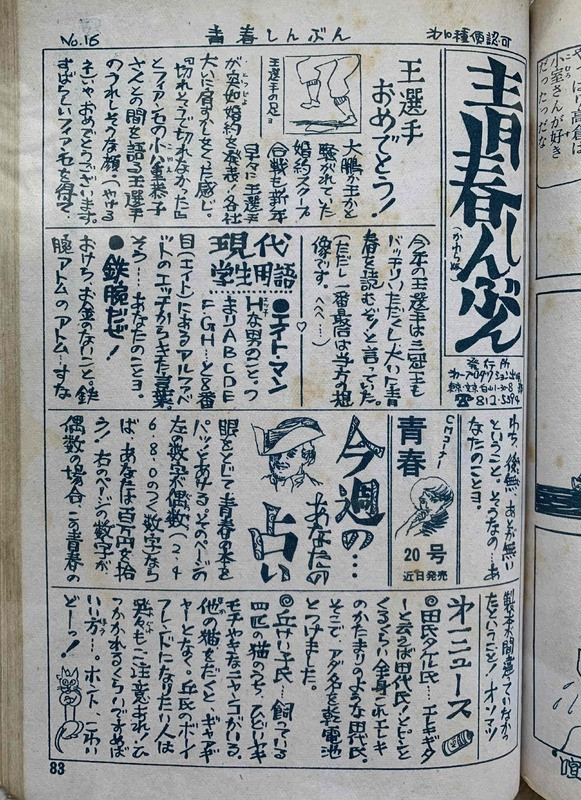 No.16
青春しんぶん
オ10種便認可
青春しんぶん
(かわら版)
発行所
☎812-5594
王選手
おめでとう!
王選手の足
大鵬か王かと
騒がれていた
婚約スクープ
合戦も新年
早々に王選手
が突如婚約を発表!各社
大いに肩すかしをくった感じ。
『切れそうで切れなかった』
とフィアンセの小八重恭子
さんとの間を語る王選手
のうれしそうな顔(やける
ネ)いやおめでとうございます。
すばらしいフィアンセを得て、
今年の王選手は三冠王も
バッチリいただくし、大いに青
春を読むぞ!と言っていた。
(ただし一番最后は当方の想
像です。へへへ…)
現代
学生用語
●エイトマン
Hな男のこと。つ
まりABCDE
FGH…と8番
目(エイト)にあるアルファベ
ットのエッチからきた言葉。
そう…あなたのことヨ。
●鉄腕だぜ!
おけらお金のないこと。鉄
腕アトムのアトム…すな
わち、後無、あとが無い
ということ。そうなの…あ
なたのことヨ。
CMコーナー
青春
20号
近日発売
今週の…
あなたの
占い
眼をとじて青春の本を
パッとあける。そのページの
左の数字が偶数(2.4
6.8.0のつく数字)なら
ば、あなたは百万円を拾
う!右のページの数字が
偶数の場合この青春の
製本が間違っていなかっ
たということ!オソマツ
オ一ニュース
◎田代タケ代氏…エレキギタ
ーと云えば田代氏!とピンと
くるぐらい全身これエレキ
のかたまりのような田代氏。
そこで、アダ名を乾電池
とつけました。
◎丘けい子氏…飼っている
四匹の猫のうち、ひどいヤキ
モチヤキなニャンコがいる。
他の猫をだくと、ギャギ
ャーとなく。丘氏のボーイ
フレンドになりたい人は
呉々もご注意あれ!ひ
っかかれるくらいですめば
いい方…。ホント、こわい
どーっ!
83